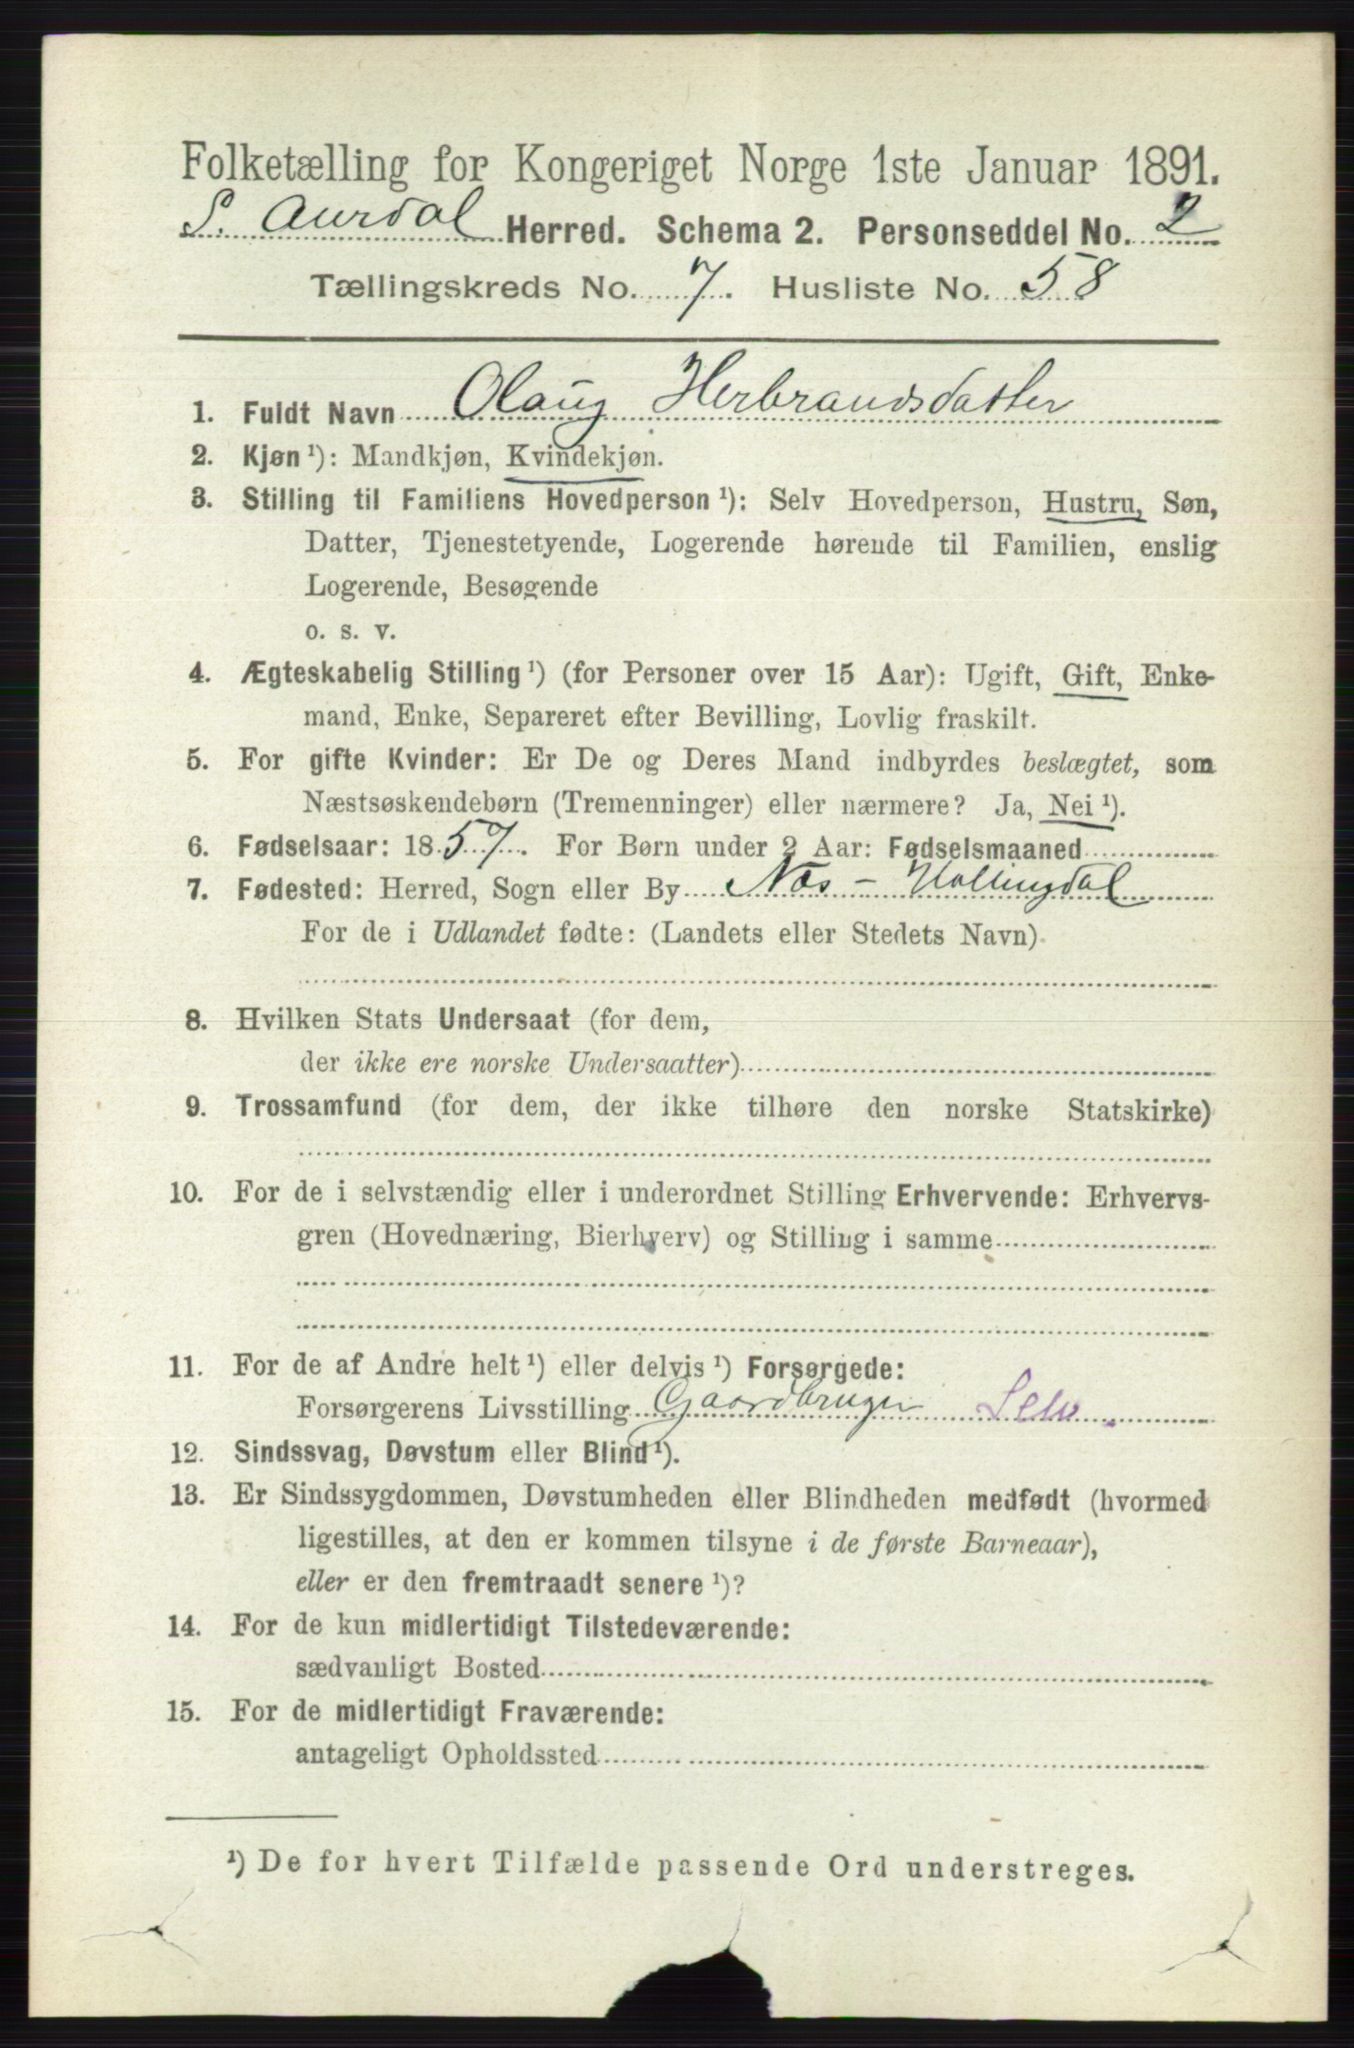 Folketælling for Kongeriget Norge 1ste Januar 1891.
S. Aurdal Herred. Schema 2. Personseddel No. 2
Tællingskreds No. 7. Husliste No. 58
1. Fuldt Navn Olaug Herbrandsdatter
2. Kjøn ¹): Mandkjøn, Kvindekjøn.
3. Stilling til Familiens Hovedperson ¹): Selv Hovedperson, Hustru, Søn,
Datter, Tjenestetyende, Logerende hørende til Familien, enslig
Logerende, Besøgende
o. s. v.
4. Ægteskabelig Stilling ¹) (for Personer over 15 Aar): Ugift, Gift, Enke-
mand, Enke, Separeret efter Bevilling, Lovlig fraskilt.
5. For gifte Kvinder: Er De og Deres Mand indbyrdes beslægtet, som
Næstsøskendebørn (Tremenninger) eller nærmere? Ja, Nei ¹).
6. Fødselsaar: 1857. For Børn under 2 Aar: Fødselsmaaned
7. Fødested: Herred, Sogn eller By Næs - Hallingdal
For de i Udlandet fødte: (Landets eller Stedets Navn)
8. Hvilken Stats Undersaat (for dem,
der ikke ere norske Undersaatter)
9. Trossamfund (for dem, der ikke tilhøre den norske Statskirke)
10. For de i selvstændig eller i underordnet Stilling Erhvervende: Erhvervs-
gren (Hovednæring, Bierhverv) og Stilling i samme
11. For de af Andre helt ¹) eller delvis ¹) Forsørgede:
Forsørgerens Livsstilling Gaardbruger Selv.
12. Sindssvag, Døvstum eller Blind ¹).
13. Er Sindssygdommen, Døvstumheden eller Blindheden medfødt (hvormed
ligestilles, at den er kommen tilsyne i de første Barneaar),
eller er den fremtraadt senere ¹)?
14. For de kun midlertidigt Tilstedeværende:
sædvanligt Bosted
15. For de midlertidigt Fraværende:
antageligt Opholdssted
¹) De for hvert Tilfælde passende Ord understreges.